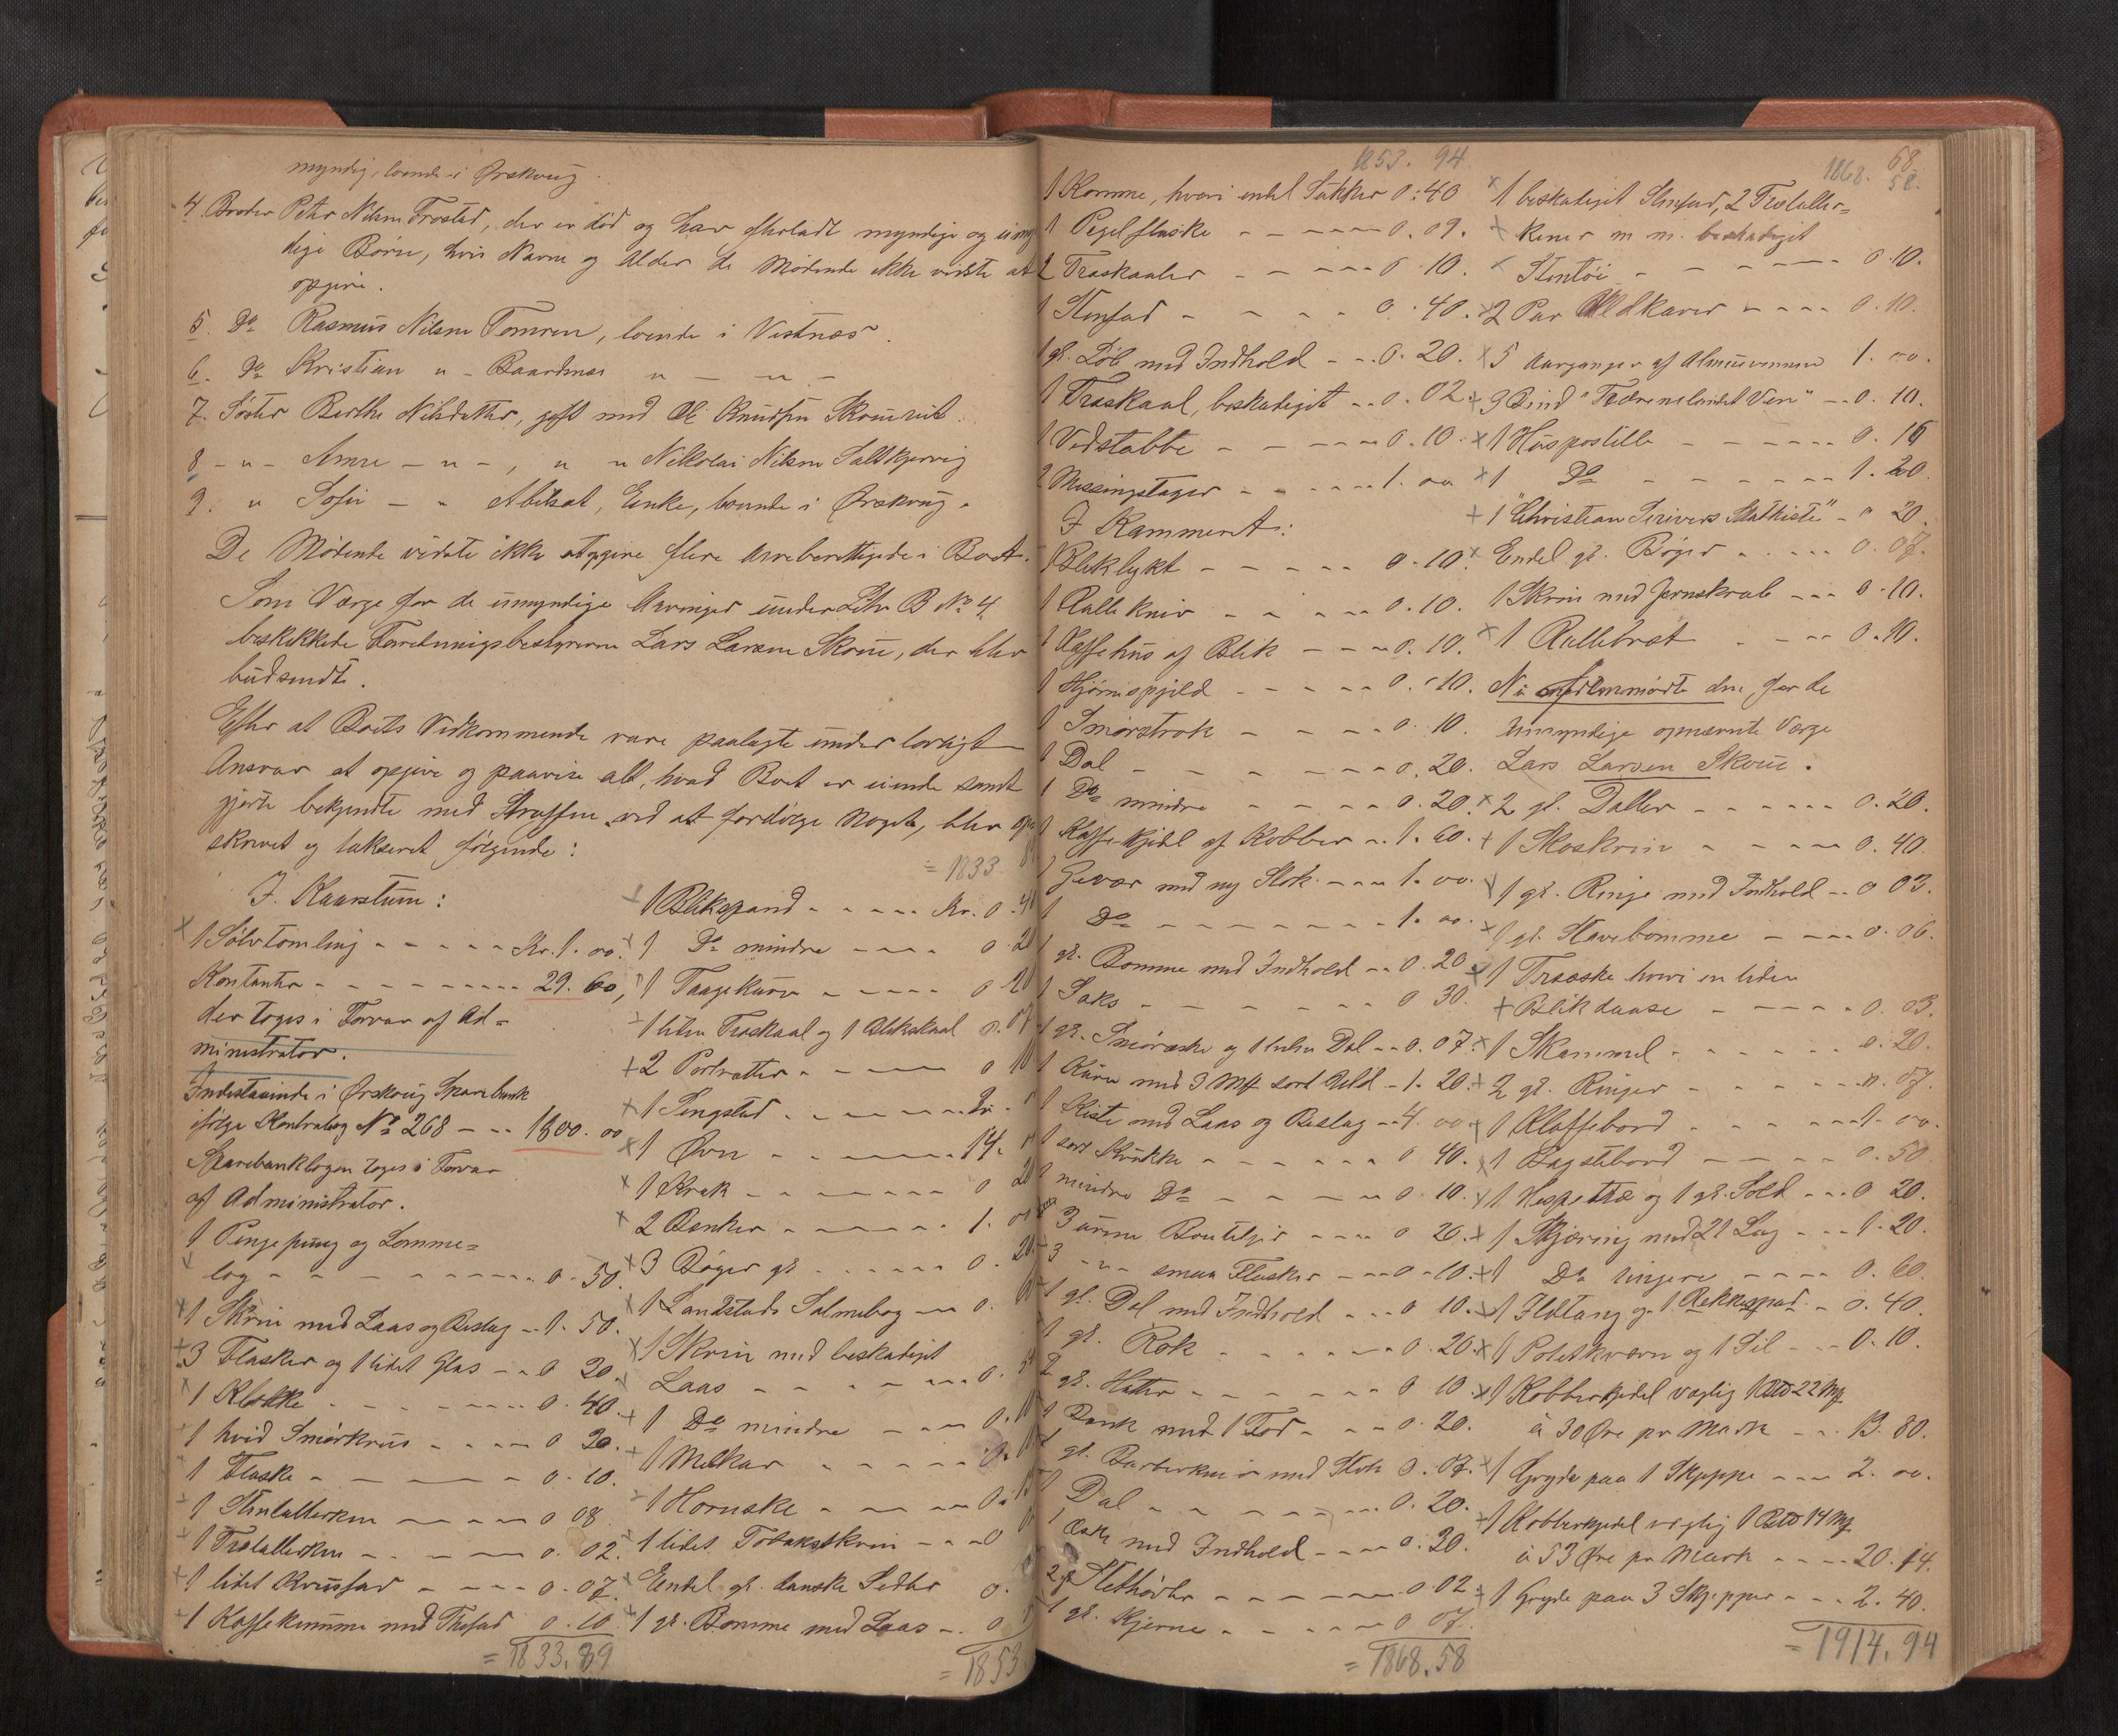 myndig, boende i Ørskoug.
4 Broder Peter Nilsen Frostad, der er död og har efterladt myndige og umyn
dige Börn, hvis Navne og Alder de Mödende ikke vidste at
opgive.
5. Do Rasmus Nilsen Tomren, boende i Vestnæs.
6. Do Kristian " - Baardnæs " - " -
7. Söster Berthe Nilsdatter, gift med Ole Knudsen
8 - " - Anne - " - , " " Nikolai Nilsen
9. " Sofie - " Abelset, Enke, boende i Ørskoug.
De Mödende vidste ikke at opgive flere Arveberettigede i Boet.
Som Værge for de umyndige Arvinger under Litr B No 4
beskikkede Forretningsbestyreren Lars Larsen Skoue, der blev
budsendt.
Efter at Boets Vedkommende vare paalagte under lovligt
Ansvar at opgive og paavise alt, hvad Boet er eiende samt
gjorte bekjendte med Straffen ved at fordölge Noget, blev op
skrevet og takseret fölgende:
I Kaarstuen:
1 Sölvtomling - - - - - Kr. 1. 00.
Kontanter - - - - - - - - - 29. 60,
der toges i Forvar af Ad=
ministrator.
Indestaaende i Ørskoug Sparebank
ifölge Kontrabog No 268 - - - 1800. 00
Sparebankbogen toges i Forvar
af Administrator.
1 Pengepung og Lomme=
bog - - - - - - - - 0. 50.
1 Skrin med Laas og Beslag - - 1. 50.
3 Flasker og 1 lidet Glas - - 0 20.
1 Klokke - - - - - - - 0. 40.
1 hvid Smörkrus - - - - 0 20.
1 Flaske - - - - - - 0. 10.
1 Stentallerken - - - - 0 08
1 Trætallerken - - - - 0. 02.
1 lidet Krusfad - - - - 0. 07.
1 Kaffekumme med Thefad 0. 10
= 1833. 89
= 1833 8
1 Blikspand - - - - - Kr. 0. 40
1 Do mindre - - - - 0. 20
1 Taagekurv - - - - 0 20
1 liden Træskaal og 1 Blikskaal 0. 07
2 Portrætter - - - - - 0 10
1 Sengsted - - - - - - 2. -
1 Övn - - - - - - - 14.
1 Krak - - - - - - - 0 20
2 Bænker - - - - - - 1. 00
3 Böger gl. - - - - - 0. 20
1 Landstads Salmebog - - 0.
1 Skrin med beskadiget
Laas - - - - - - - 0.
1 Do mindre - - - 0.
1 Melkar - - - - - 0.
1 Hornske - - - - - 0.
1 lidet Tobakskrin - - - 0
Endel gl. danske Sedler 0.
1 gl. Bomme med Laas - . 0
= 1853
1853. 94
1868. 58.
68.
1 Komme, hvori endel Sukker 0. 40
1 Pegelflaske - - - - - 0. 09.
2 Træskaaler - - - - - 0. 10.
1 Stenfad - - - - 0. 40.
1 gl. Löb med Indhold - - 0. 20.
1 Træskaal, beskadiget - - 0. 02
1 Vedstabbe - - - - - - 0. 10.
2 Messingstager - - - - - 1. 00
I Kammeret:
1 Bliklygt - - - - - 0. 10.
1 Rullekniv - - - - - 0. 10.
1 Kaffehus af Blik - - - 0. 10.
1 Hjörnespjeld - - - - - 0. 10.
1 Smörstrok - - - - - 0. 10.
1 Dal - - - - - - - 0. 20.
1 Do mindre - - - - - 0. 20.
1 Kaffekjedel af Kobber - . 1. 60.
1 Gevær med ny Stok - - - 1. 00.
1 Do - - - - - - - - 1. 00.
1 gl. Bomme med Indhold - - 0. 20
1 Saks - - - - - - - 0 30.
1 gl. Smöræske og 1 liden Dal - - 0. 07.
1 Kurv med 3 Mk sort Uld - 1. 20.
1 Kiste med Laas og Beslag - - 4. 00.
1 sort Krukke - - - - - - 0 40.
1 mindre Do - - - - - 0. 10.
3 tomme Bouteljer - - - - 0 20.
3 - " - smaa Flasker - - - 0. 10.
1 gl. Dal med Indhold - - - 0 10.
1 gl. Rok - - - - - - 0. 20
2 gl. Hatter - - - - - - 0 10.
1 Bænk med 1 Fod - - - 0. 20.
1 gl. Barberkniv med Stok 0. 07.
1 Dal - - - - - - - 0. 20.
1 Æske med Indhold - - - - 0. 20.
2 gl. - - - - - - 0. 02
1 gl. Kjerne - - - - - 0 07.
= 1868. 58
1 beskadiget Stenfad, 2 Trætaller=
kener m. m. beskadiget
Stentöi - - - - - - 0. 10.
2 Par Uldkarver - - - - 0. 10.
5 Aargange af Almuevennen 1. 00.
3 Bind "Fædrenelandet Ven" - - 0. 10.
1 Huspostille - - - - - - 0. 10
1 Do - - - - - - - 1. 20.
1 "Christian Scrivers Skatkiste" - 0 20.
Endel gl. Böger - - - - - 0. 07.
1 Skrin med Jernskrab - - - 0. 10.
1 Rullebræt - - - - 0. 10.
Nu fremmödte den for de
Umyndige opnævnte Værge
Lars Larsen Skoue.
2 gl. Daller - - - - - - 0. 20.
1 Skoskrin - - - - - 0. 40.
1 gl. Ringe med Indhold - - 0 03.
1 gl. Havrebomme - - - - 0. 06.
1 Trææske hvori en liden
Blikdaase - - - - - 0. 03.
1 Skammel - - - - - - 0. 20.
2 gl. Ringer - - - - - - 0. 07.
1 Klaffebord - - - - - - 1. 00.
1 Bagstebord - - - - - 0. 50
1 Hespetræ og 1 gl. Sold - - - 0 20.
1 Skjæring med 21 Lag - - - 1. 20.
1 Do ringere - - - - 0. 60.
1 Ildtang og 1 Rekkespad - 0. 40.
1 Potetkværn og 1 Sil - - - 0. 10.
1 Kobberkjedel vægtig 1 Bd 22 Mk
à 30 Øre pr Mark - - . 13. 80.
1 Gryde paa 1 Skjeppe - - - 2. 00.
1 Kobberkjedel vægtig 1 Bd 14 Mk
à 53 Øre pr Mark - - - - 20. 14.
1 Gryde paa 3 Skjepper - - - 2. 40.
= 1914. 94